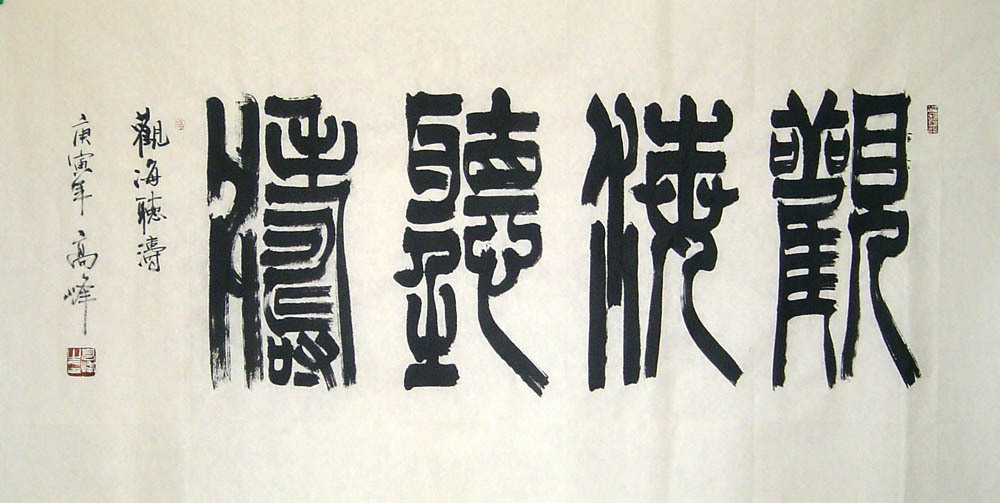 觀海聽濤
觀海聽濤
庚寅年 高峰